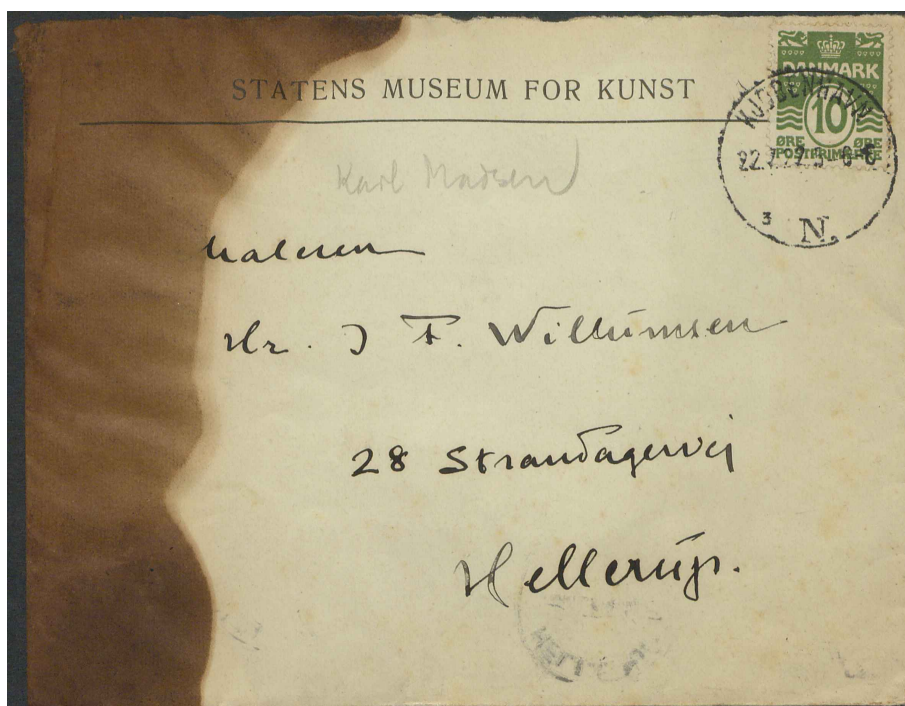 STATENS MUSEUM FOR KUNST
DANMARK
10
ØRE ØRE
POSTFRIMÆRKE
KJØBENHAVN
3 N.
Karl Madsen
Maleren
Hr. J F. Willumsen
28 Strandagervej
Hellerup.